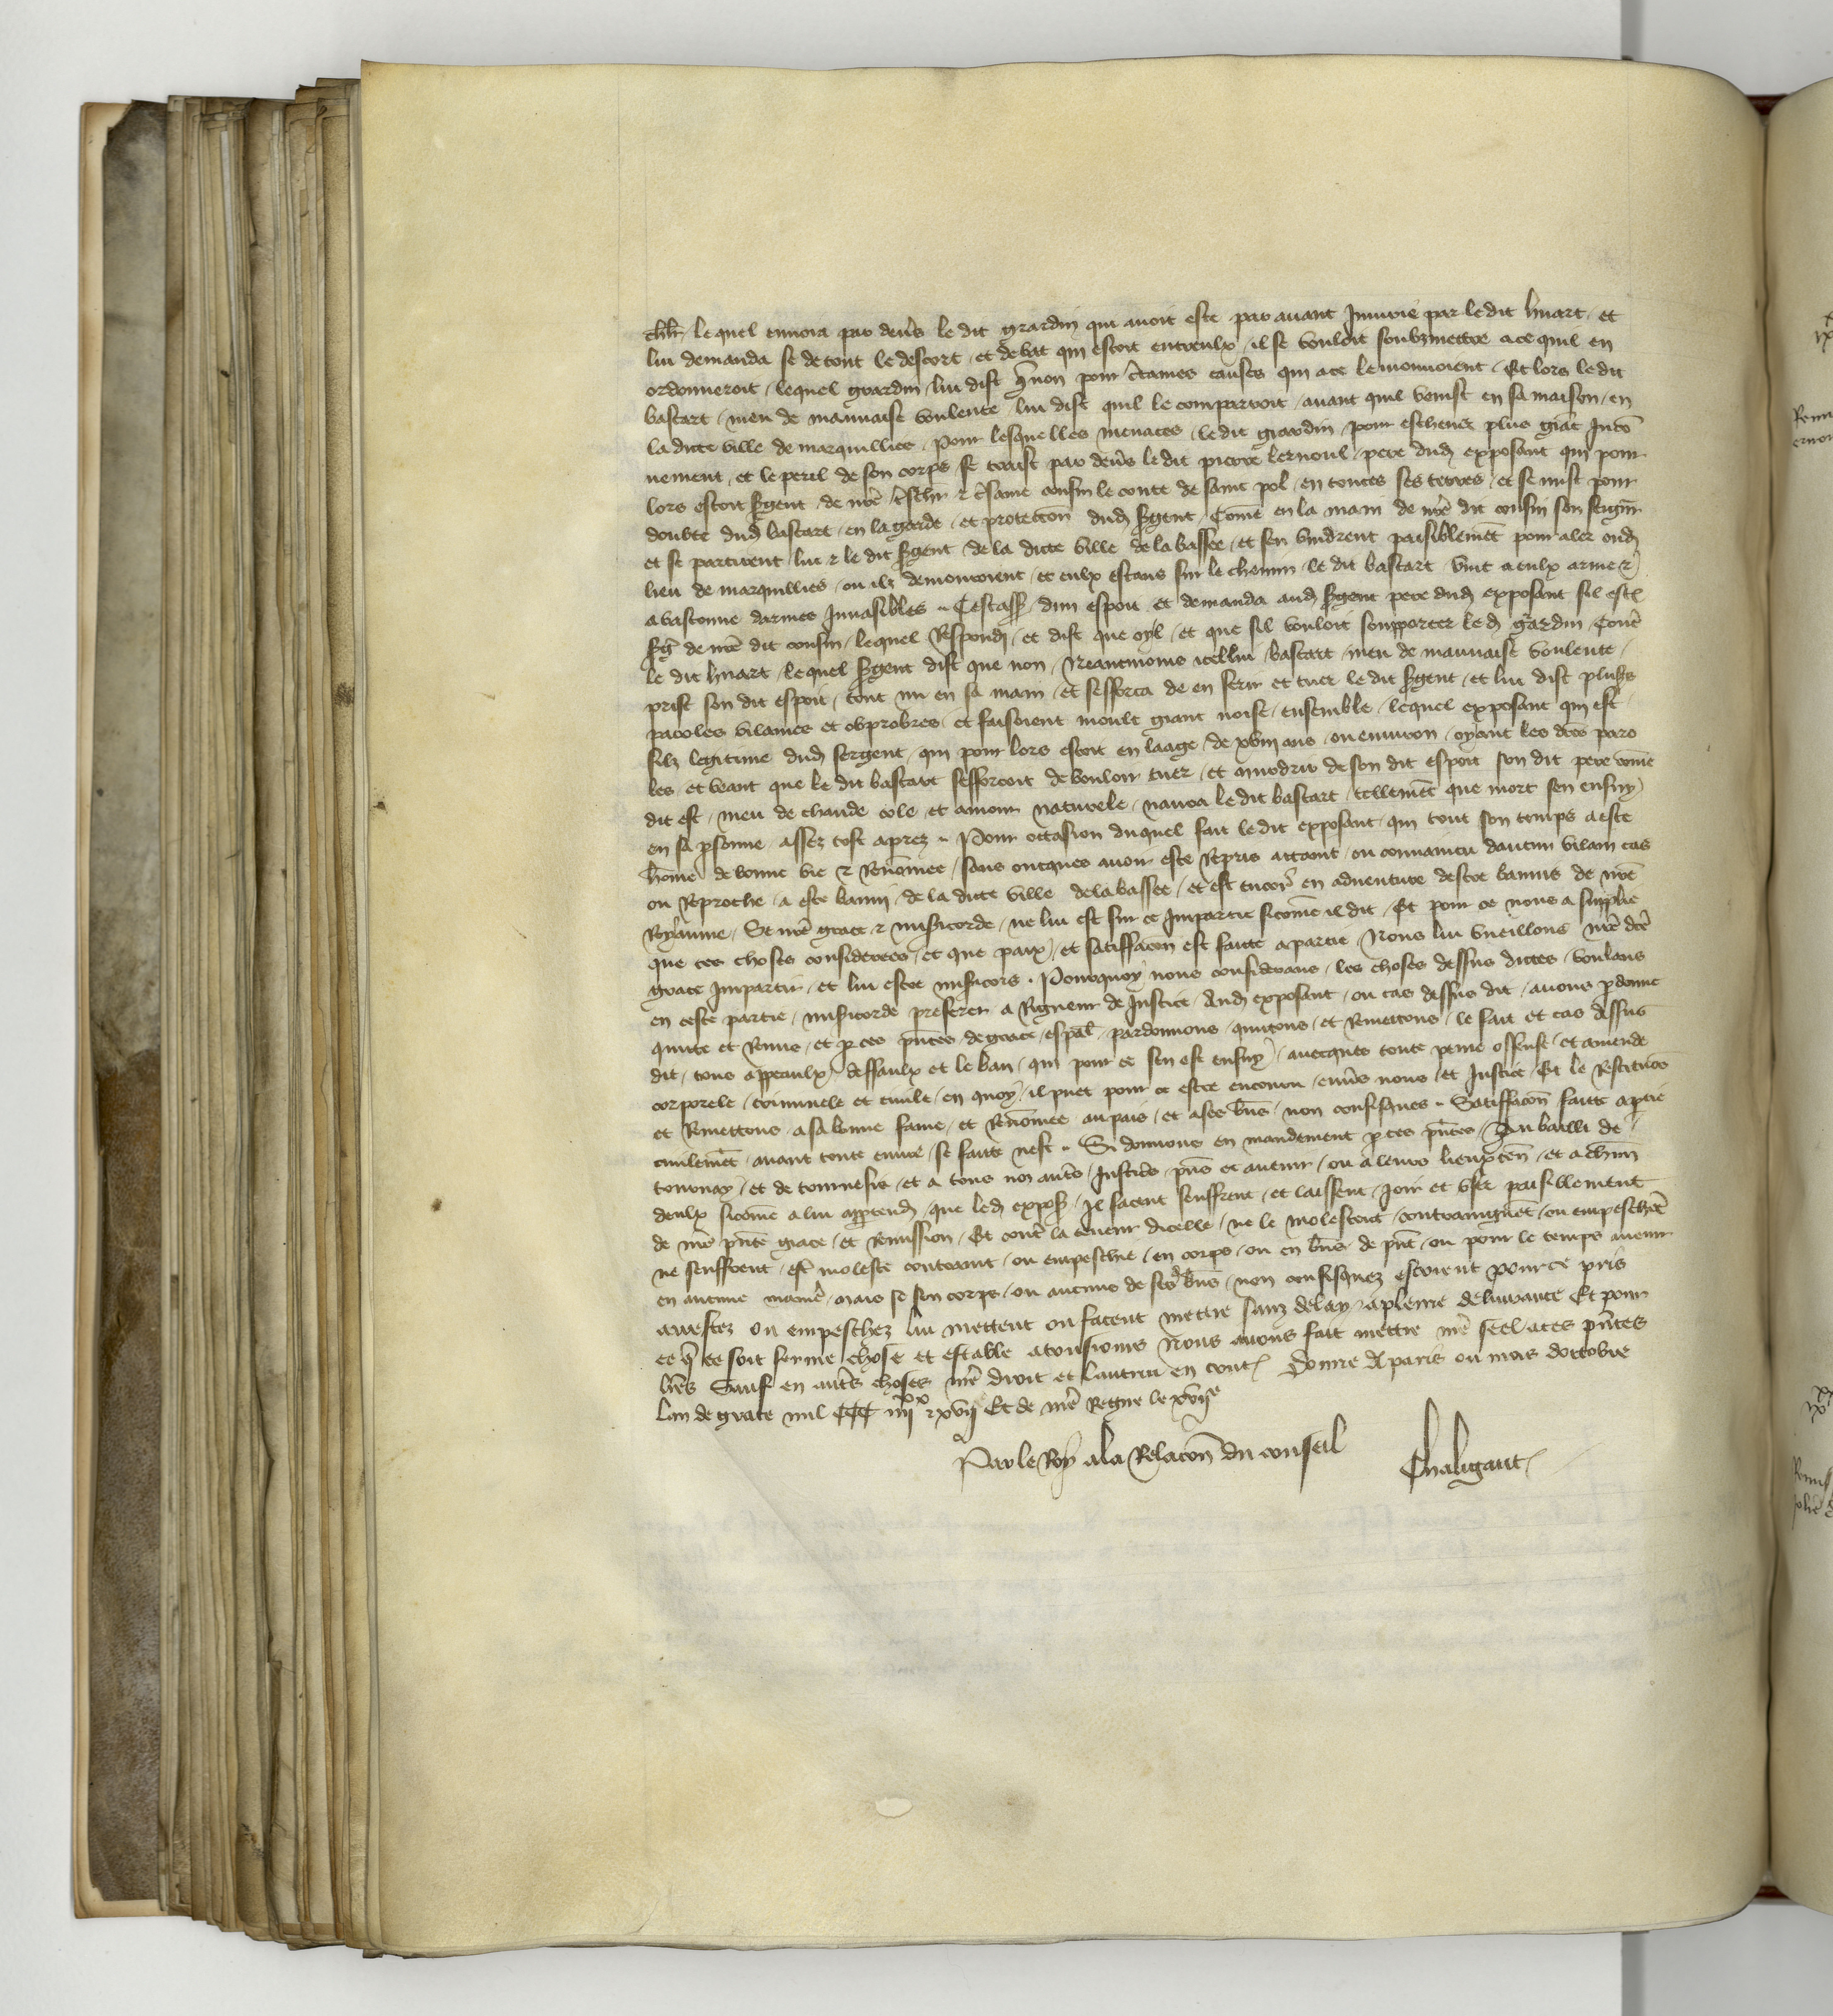 chlr lequel envoia par devs le dit grardin qui avoit este par avant Iniurie par ledit hnart et
lui demanda se de tout le descort et debat qui estoit entreulx il se vouloit soubzmettre a ce quil en
ordonneroit lequel grardin lui dist q non pour ctaines causes qui a ce le mouvoient Et lors ledit
bastart meu de mauvaise voulente lui dist quil le comparroit avant quil venist en sa maison en
la dicte ville de marquillies Pour lesquelles menaces ledit grardin pour eschever plus grat Inco
nienient et le peril de son corps se traist par devs le dit pierre lernoul pere dud exposant qui pour
lors estoit sgent de nre cousin le conte de saint pol en toutes ses terres et se mist pour
doubte dud bastart en la garde et proteccon dud sgent Come en la main de nre dit cousin son seigne
et se partirent lui & le dit sgent de la dicte ville de la bassee et sen vindrent paisiblemet pour aler oud
lieu de marquillies ou ilz demouroient et eulx estans sur le chemin le dit bastart vint a eulx arme &
abastonne darmes Invasibles Cestass dun espoit et demanda aud sgent pere dud exposant sil est
sg de nre dit cousin lequel Respond et dist que oyl et que sil vouloit supporter led grardin Cont
le dit hnart lequel sgent dist que non Neantmoins icellui bastart meu de mauvaise voulente
prist son dit espoit tout nu en sa main et sefforca de en ferir et tuer le dit sgent et lui dist pluss
paroles vilaines et obprobres et faisoient moult grant noise ensemble lequel exposant qui est
filz legitime dud sergent qui pour lors estoit en laage de xviij ans ou environ oyant les dces paro
les et veant que le dit bastart sefforcoit de vouloir tuer et murdrir de son dit espoit son dit pere come
dit est meu de chaude cole et amour naturele navra le dit bastart tellemet que mort sen ensuy
en sa psonne assez tost aprez Pour occasion duquel fait le dit exposant qui tout son temps a este
home de bonne vie & Renomee sans oncques avoir este Repris attaint ou convaincu daucun vilain cas
ou Reproche a este banni de la dicte ville de la bassee et est encor en adventure destre bannis de nre
Royaume Se nre grace & misicorde ne lui est sur ce Impartie sicome il dit Et pour ce nous a supplie
que ces choses considerees et que paix et satiffacon est faicte a partie Nous lui vueillons nre dce
grace Impartir et lui estre misicors Pourquoy nous considerans les choses dessus dictes voulans
en ceste partie misicorde preferer a Rigueur de Justice Aud exposant ou cas dessus dit avons pdonne
quitte et Remis et p ces pntes de grace espal pardonnons quittons et Remettons le fait et cas dessus
dit tous appeaulx deffaulx et le ban qui pour ce sen est ensuy avecques toute peine offense et amende
corporele criminele et civile en quoy il puet pour ce estre encouru envs nous et Justice Et le Restituons
et Remettons a sa bonne fame et Renomee au pais et a ses bns non confisques Satiffacon faicte a ptie
civilemet avant toute euvre se faicte nest Si donnons en mandement p ces pntes Au bailli de
tournay et de tournesis et a tous noz autrs Justics pns et avenir ou a leurs lieuxten et a chun
deulx sicome a lui apptend que led expos Il facent seuffrent et laissent joir et user paisiblement
de nre pnte grace et remission Et cont la teneur dicelle ne le molestent contraignet ou empeschet
ne seuffrent est moleste contraint ou empeschie en corps ou en bns de pnt ou pour le temps avenir
en aucune maniere mais se son corps ou aucuns de ses bns non confisquez estoient pource pris
arrestez ou empeschez lui mettent ou facent mettre sanz delay a pleine delivrance Et pour
ce q ce soit ferme chose et estable a tousiours Nous avons fait mettre nre seel a ces pntes
lres Sauf en autrs choses nre droit et lautrui en tout Donne A paris ou mois doctobre
lan de grace mil CCC iiijxx & xvij Et de nre Regne le xviie
Par le Roy a la Relacon du conseil Chaligaut